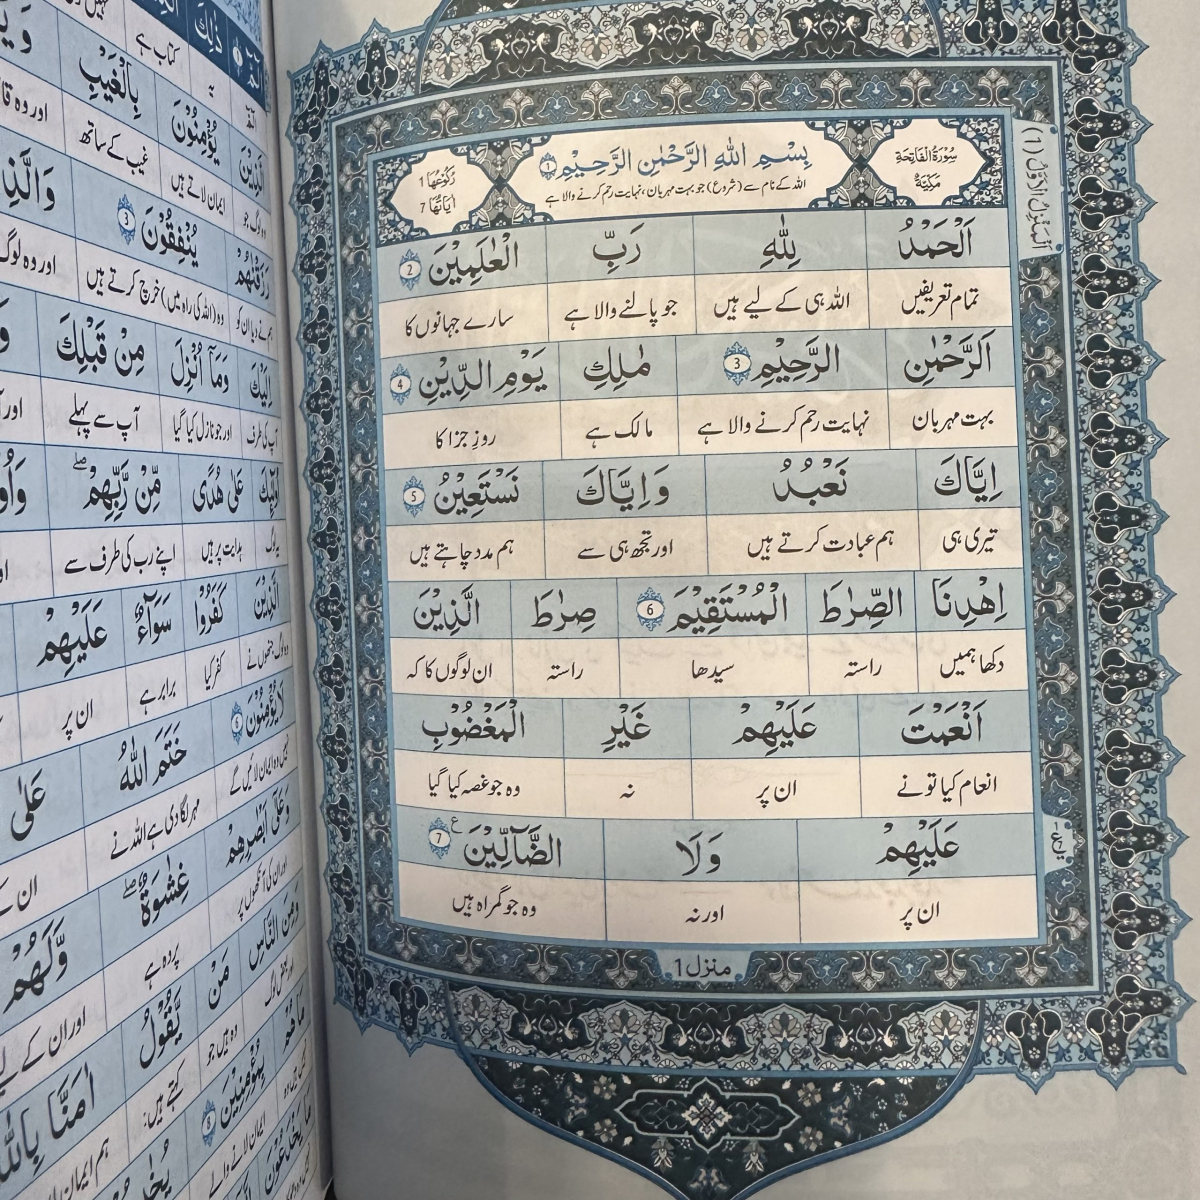 سُوْرَةُ الْفَاتِحَةِ
مَكِّيَّةٌ
بِسْمِ اللهِ الرَّحْمٰنِ الرَّحِيْمِ 1
اللہ کے نام سے (شروع) جو بہت مہربان، نہایت رحم کرنے والا ہے
رُكُوْعُهَا 1
اٰيَاتُهَا 7
اَلْمَنْزِلُ الْاَوَّلُ (1)
اَلْحَمْدُ لِلّٰهِ رَبِّ الْعٰلَمِيْنَ 2
تمام تعریفیں اللہ ہی کے لیے ہیں جو پالنے والا ہے سارے جہانوں کا
الرَّحْمٰنِ الرَّحِيْمِ 3 مٰلِكِ يَوْمِ الدِّيْنِ 4
بہت مہربان نہایت رحم کرنے والا ہے مالک ہے روزِ جزا کا
اِيَّاكَ نَعْبُدُ وَاِيَّاكَ نَسْتَعِيْنُ 5
تیری ہی ہم عبادت کرتے ہیں اور تجھ ہی سے ہم مدد چاہتے ہیں
اِهْدِنَا الصِّرٰطَ الْمُسْتَقِيْمَ 6 صِرٰطَ الَّذِيْنَ
دکھا ہمیں راستہ سیدھا راستہ ان لوگوں کا کہ
اَنْعَمْتَ عَلَيْهِمْ غَيْرِ الْمَغْضُوْبِ
انعام کیا تو نے ان پر نہ وہ جو غصہ کیا گیا
عَلَيْهِمْ وَلَا الضَّآلِّيْنَ 7
ان پر اور نہ وہ جو گمراہ ہیں
منزل 1
ذٰلِكَ
کتاب ہے
الَّذِيْنَ يُؤْمِنُوْنَ بِالْغَيْبِ
وہ لوگ جو ایمان لاتے ہیں غیب کے ساتھ
رَزَقْنٰهُمْ يُنْفِقُوْنَ 3 وَالَّذِ
ہم نے دیا ان کو وہ (اللہ کی راہ میں) خرچ کرتے ہیں اور وہ لوگ
اِلَيْكَ وَمَآ اُنْزِلَ مِنْ قَبْلِكَ
آپ کی طرف اور جو نازل کیا گیا آپ سے پہلے
عَلٰى هُدًى مِّنْ رَّبِّهِمْ
ہدایت پر ہیں اپنے رب کی طرف سے
الَّذِيْنَ كَفَرُوْا سَوَآءٌ عَلَيْهِمْ
وہ لوگ جنھوں نے کفر کیا برابر ہے ان پر
لَا يُؤْمِنُوْنَ 6 خَتَمَ اللهُ عَلٰى
نہیں وہ ایمان لائیں گے مہر لگا دی ہے اللہ نے
وَعَلٰٓى اَبْصَارِهِمْ غِشَاوَةٌ وَّلَهُمْ
اور ان کی آنکھوں پر پردہ ہے اور ان کے لیے
وَمِنَ النَّاسِ مَنْ يَّقُوْلُ اٰمَنَّا بِاللهِ
وہ ہیں جو کہتے ہیں: ہم ایمان
مَا هُمْ بِمُؤْمِنِيْنَ 8
ایمان لانے والے